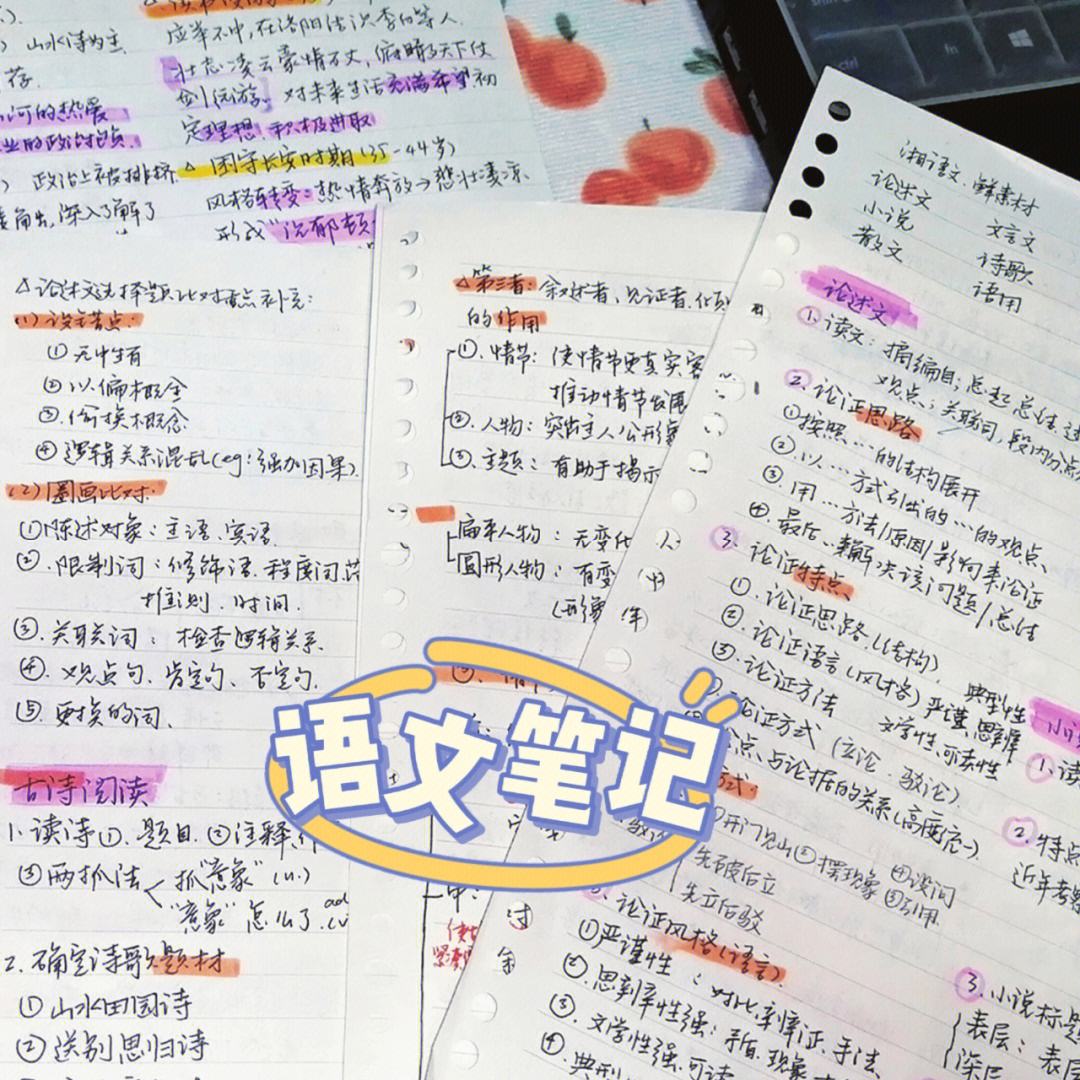 山水诗为主
应举不中,在洛阳结识李白等人.
壮志凌云豪情万丈,俯瞰天下仗
剑远游. 对未来生活充满希望初
定理想 积极进取
河的热爱
业的政治抱负
政治上被排挤
深入了解了
△ 困守长安时期(35-44岁)
风格转变:热情奔放→悲壮凄凉
形成"沉郁顿
△论述文选择题比对重点补充:
(1) 设错点:
① 无中生有
② 以偏概全
③ 偷换概念
④ 逻辑关系混乱(eg:强加因果)
(2) 圈画比对:
①陈述对象:主语、宾语.
②.限制词:修饰语.程度词.范
推测.时间.
③.关联词:检查逻辑关系.
④.观点句、肯定句、否定句.
⑤.更换的词、
古诗阅读
1.读诗①.题目.②注释
③两抓法
抓"意象"(n.)
"意象"怎么了
2.确定诗歌题材
①山水田园诗
②送别思归诗
△第三者:叙述者,见证者,
的作用
①.情节:使情节更真实客
推动情节发展
②.人物:突出主人公形象
③.主题:有助于揭示
扁平人物:无变化
圆形人物:有变
(形象
语文笔记
湘语文.鲜素材
论述文 文言文
小说 诗歌
散文 语用
论述文
1.读文:摘编自;总起总结
观点;关联词,段内分点
2.论证思路
①按照…的结构展开
②.以…方式引出的…的观点
③.用…方法/原因/影响来论证
④.最后…来解决该问题/总结
3.论证特点
①.论证思路(结构)
②.论证语言(风格)严谨,思辨
③.论证方法 典型性
文学性、可读性
论证方式(立论.驳论)
论点与论据的关系(高度统一)
①开门见山②摆现象④设问
⑤引用
先破后立
先立后驳
论证风格(语言)
①严谨性:对比,辩证.手法
②.思辨性强:矛盾.现象
③.文学性强.可读
④.典型
小说
1.读
2.特点
近年考察
3.小说标题
表层:表层
深层